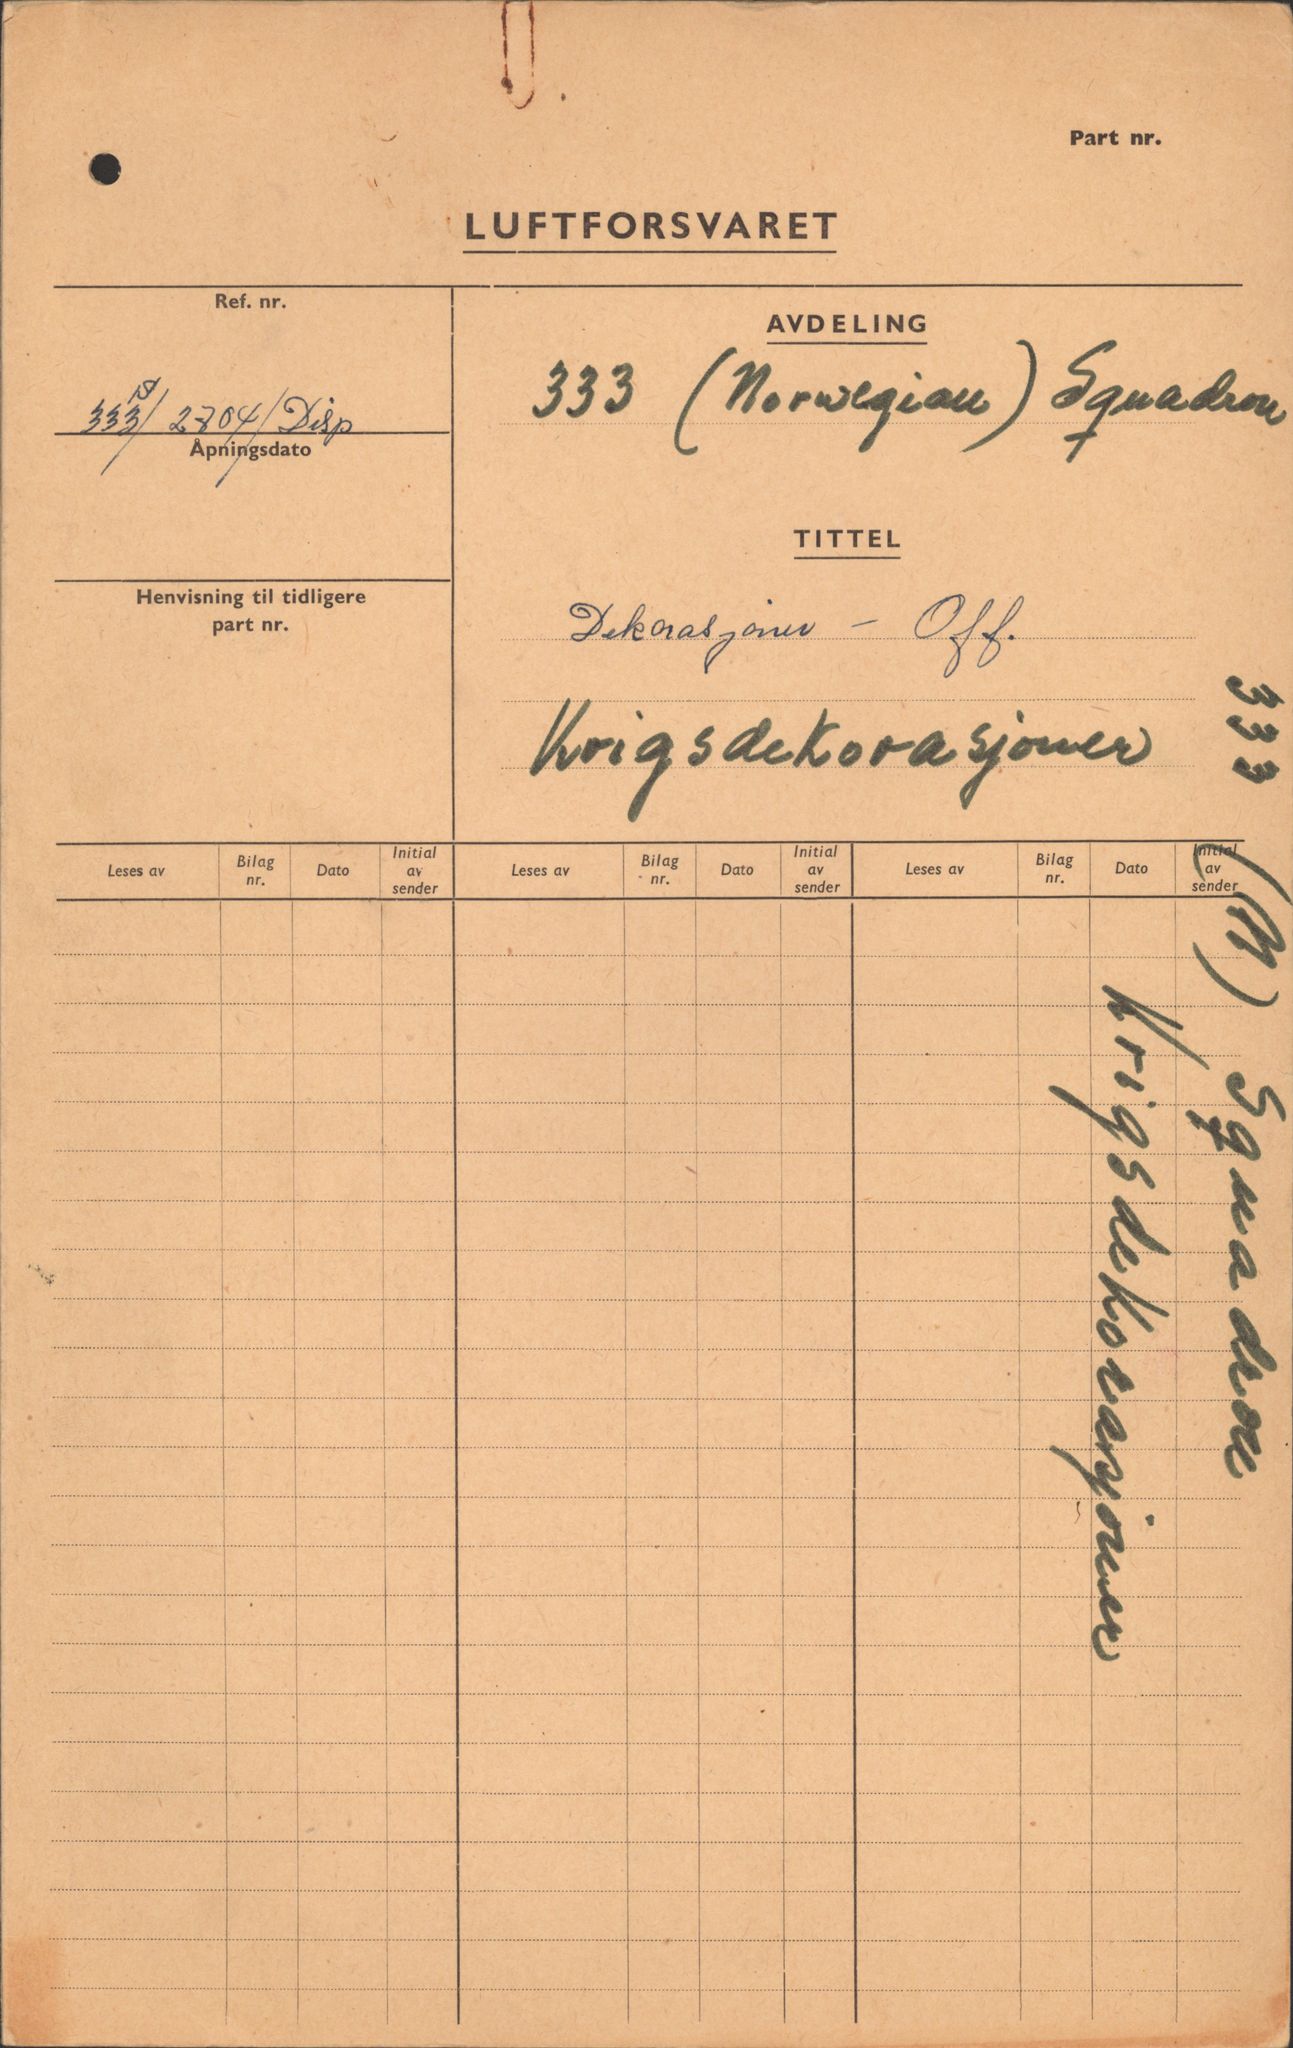 Part nr.
LUFTFORSVARET
Ref. nr.
333/ 2704/ Disp
Åpningsdato
Henvisning til tidligere
part nr.
AVDELING
333 (Norwegian) Squadron
TITTEL
Dekorasjoner - Off.
Krigsdekorasjoner
Leses av
Bilag
nr.
Dato
Initial
av
sender
Leses av
Bilag
nr.
Dato
Initial
av
sender
Leses av
Bilag
nr.
Dato
Initial
av
sender
333 (N) Squadron
Krigsdekorasjoner